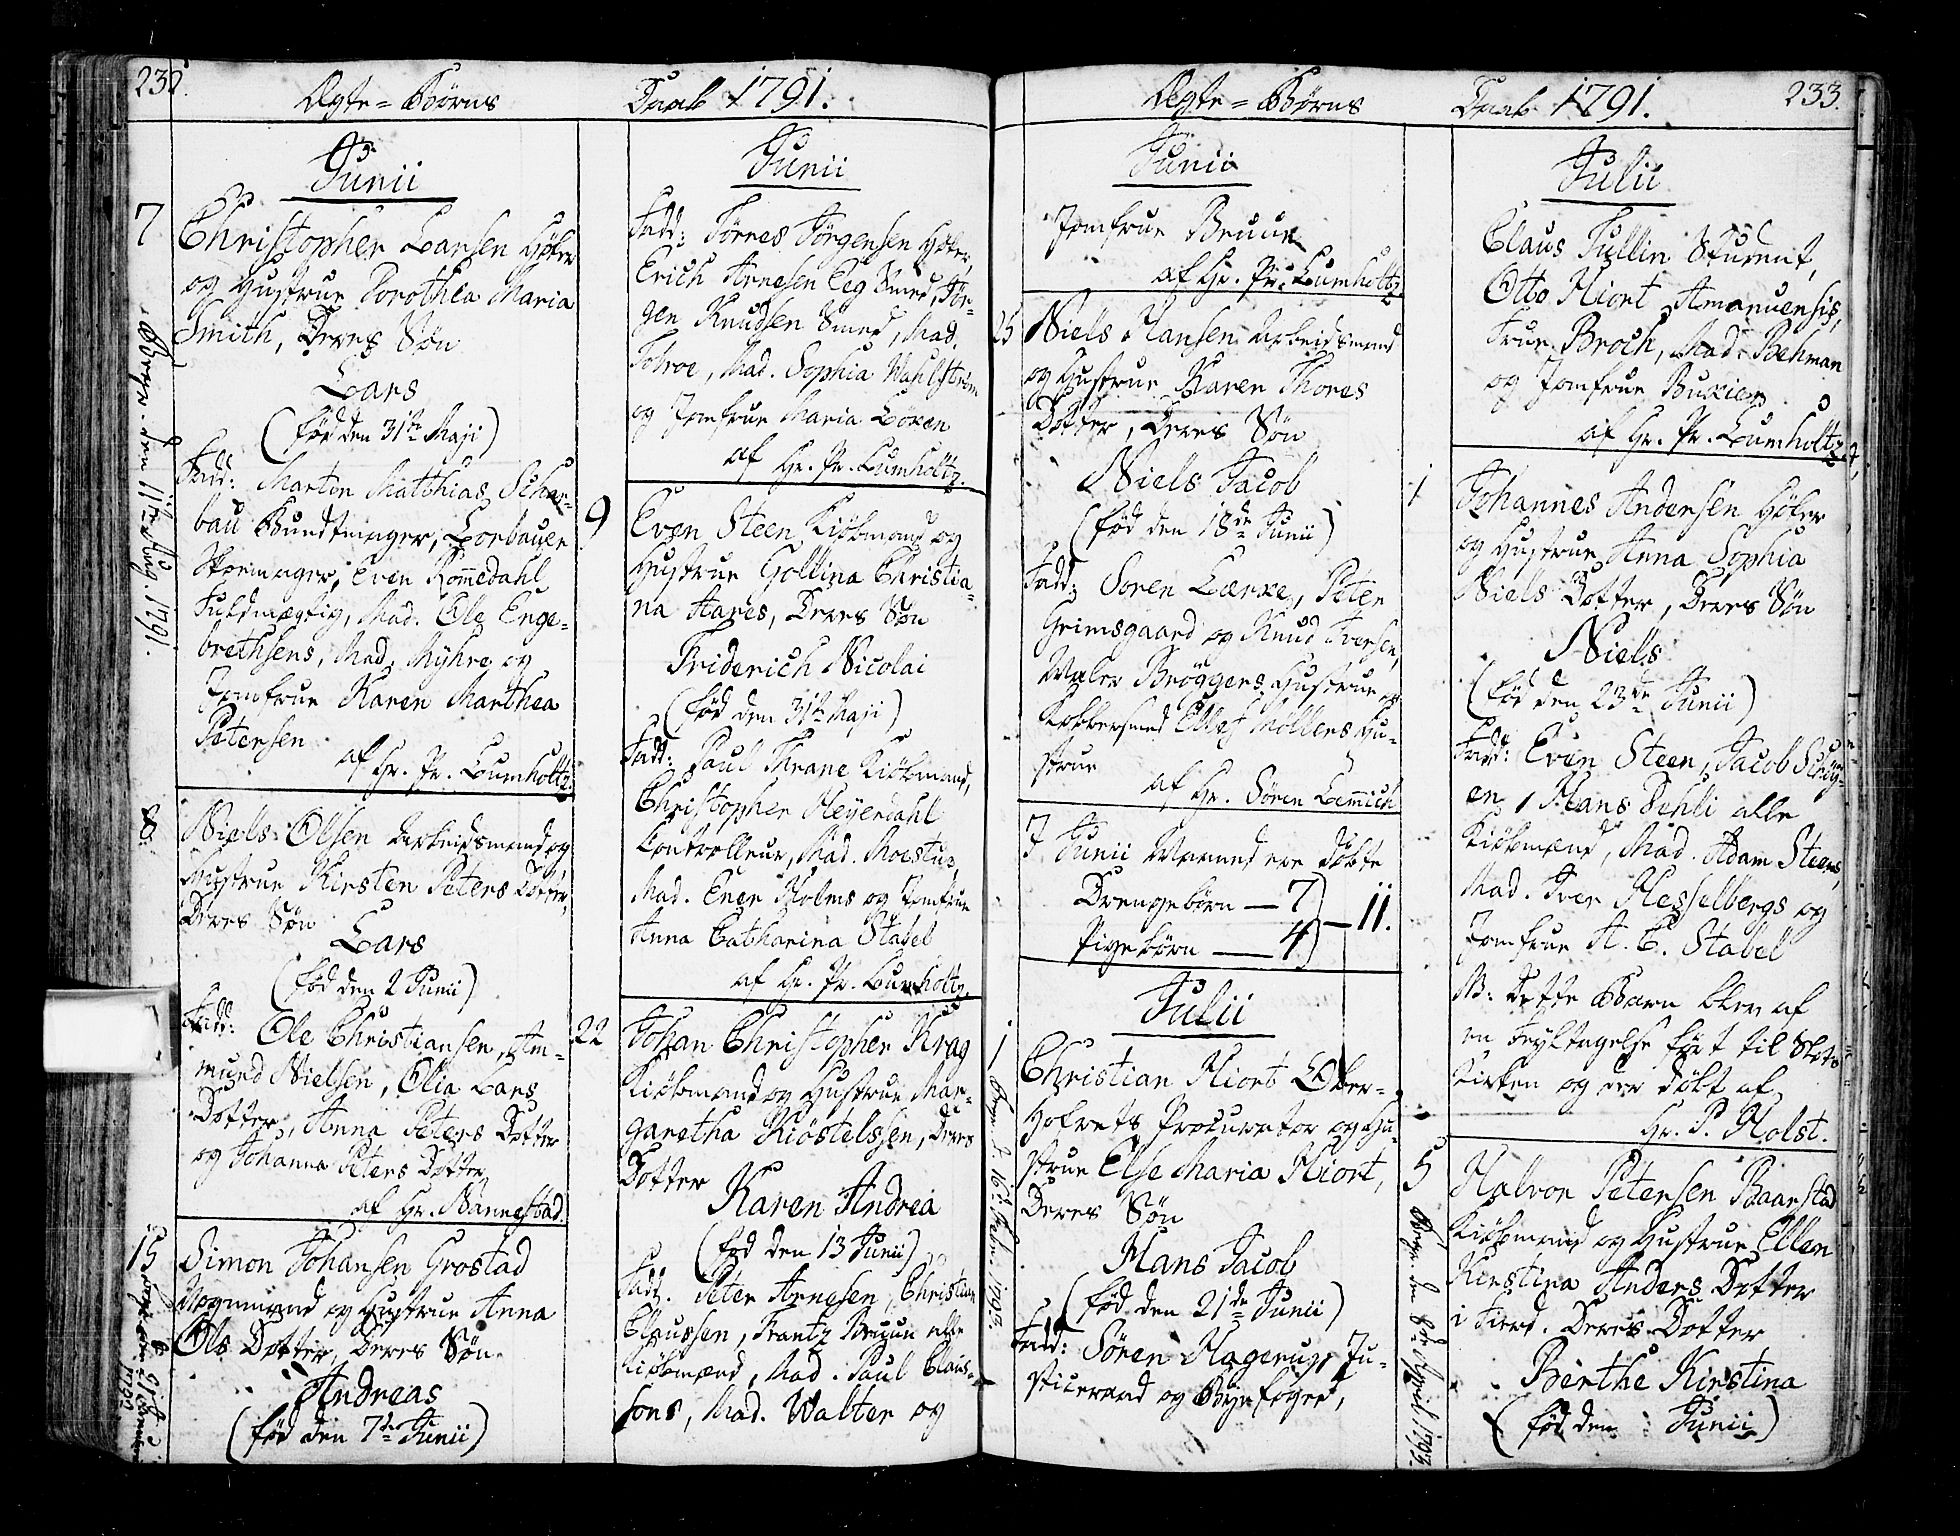 232.
Ægte = Børns Daab 1791.
Junii
7
Christopher Larsen Høker
og Hustrue Dorothea Maria
Smith, Deres Søn
Lars
(fød den 31te Maji)
Fadd: Marton Matthias Schar-
bau Bundtmager, Lorbauer
Skomager, Even Rommedahl
Fuldmægtig, Mad. Ole Enge-
brethsens, Mad. Myhre og
Jomfrue Karen Marthea
Petersen
af Hr. Pr. Lumholtz.
Begr. den 11te Aug. 1791.
8.
Niels Olsen Arbeidsmand og
Hustrue Kirsten Peters Dotter,
Deres Søn
Lars
(fød den 2 Junii)
Fadd: Ole Christiansen, Am-
mund Nielsen, Olia Lars
Dotter, Anna Peters Dotter
og Johanna Peters Dotter
af Hr. Nannestad.
15
Simon Johansen Grostad
Vognmand og Hustrue Anna
Ols Dotter, Deres Søn
Andreas
(fød den 7de Junii)
Junii
Fadd: Tørres Jørgensen Høker,
Erich Arnesen Eeg Smed, Jør-
gen Knudsen Smed, Mad.
Mad. Sophia Wahlstrøm
og Jomfrue Maria Løken
af Hr. Pr. Lumholtz.
9
Even Steen Kiöbmand og
Hustrue Gollina Christia-
na Aares, Deres Søn
Friderich Nicolai
(fød den 31te Maji)
Fadd: Paul Thrane Kiöbmand,
Christopher Heyerdahl
Controlleur, Mad. Moestue,
Mad. Even Holms og Jomfrue
Anna Catharina Stabel
af Hr. Pr. Lumholtz.
22
Johan Christopher Krag
Kiöbmand og Hustrue Mar-
garetha Kiöstelssen, Deres
Dotter
Karen Andrea
(fød den 13 Junii)
Fadd. Peter Arnesen, Christian
Claussen, Frantz Bruun alle
Kiöbmænd, Mad. Paul Claus-
sons, Mad. Walter og
233.
Ægte = Børns Daab 1791.
Junii
Jomfrue Bruun
af Hr. Pr. Lumholtz.
25
Niels Hansen Arbeidsmand
og Hustrue Karen Thores
Dotter, Deres Søn
Niels Jacob
(fød den 18de Junii)
Fadd: Soren Lærke, Peter
Grimsgaard og Knud Iversen,
Maler Bröggers Hustrue og
Kobbersmed Ellef Möllers Hu-
strue
af Hr. Søren Lemmich
I Junii Maaned ere døbte
Drengebörn — 7
Pigebörn — 4) — 11.
Julii
1
Christian Hiort Ober-
Hofrets Procurator og Hu-
strue Else Maria Hiort,
Deres Søn
Hans Jacob
(fød den 21de Junii)
Fadd: Søren Hagerup, Ju-
sticeraad og Byefoged,
Julii
Claus Tullin Student,
Otto Hiort Amanuensis,
Frue Broch, Mad. Behman
og Jomfrue
af Hr. Pr. Lumholtz.
1
Johannes Andersen Höker
og Hustrue Anna Sophia
Niels Dotter, Deres Søn
Niels
(fød den 23de Junii)
Fadd: Even Steen, Jacob Schöy-
en, Hans Dehli alle
Kiöbmænd, Mad. Adam Steens,
Mad. Iver Hesselbergs og
Jomfrue A. C. Stabel
NB: Dette Barn blev af
en Feyltagelse ført til Slots
Kirken og der døbt af
Hr. P. Holst.
5
Halvor Petersen Baarstad
Kiöbmand og Hustrue Ellen
Kirstina Anders Dotter
i Fierd. Deres Dotter
Berthe Kirstina
(fød den Junii)
Begr. den 8de April 1793.